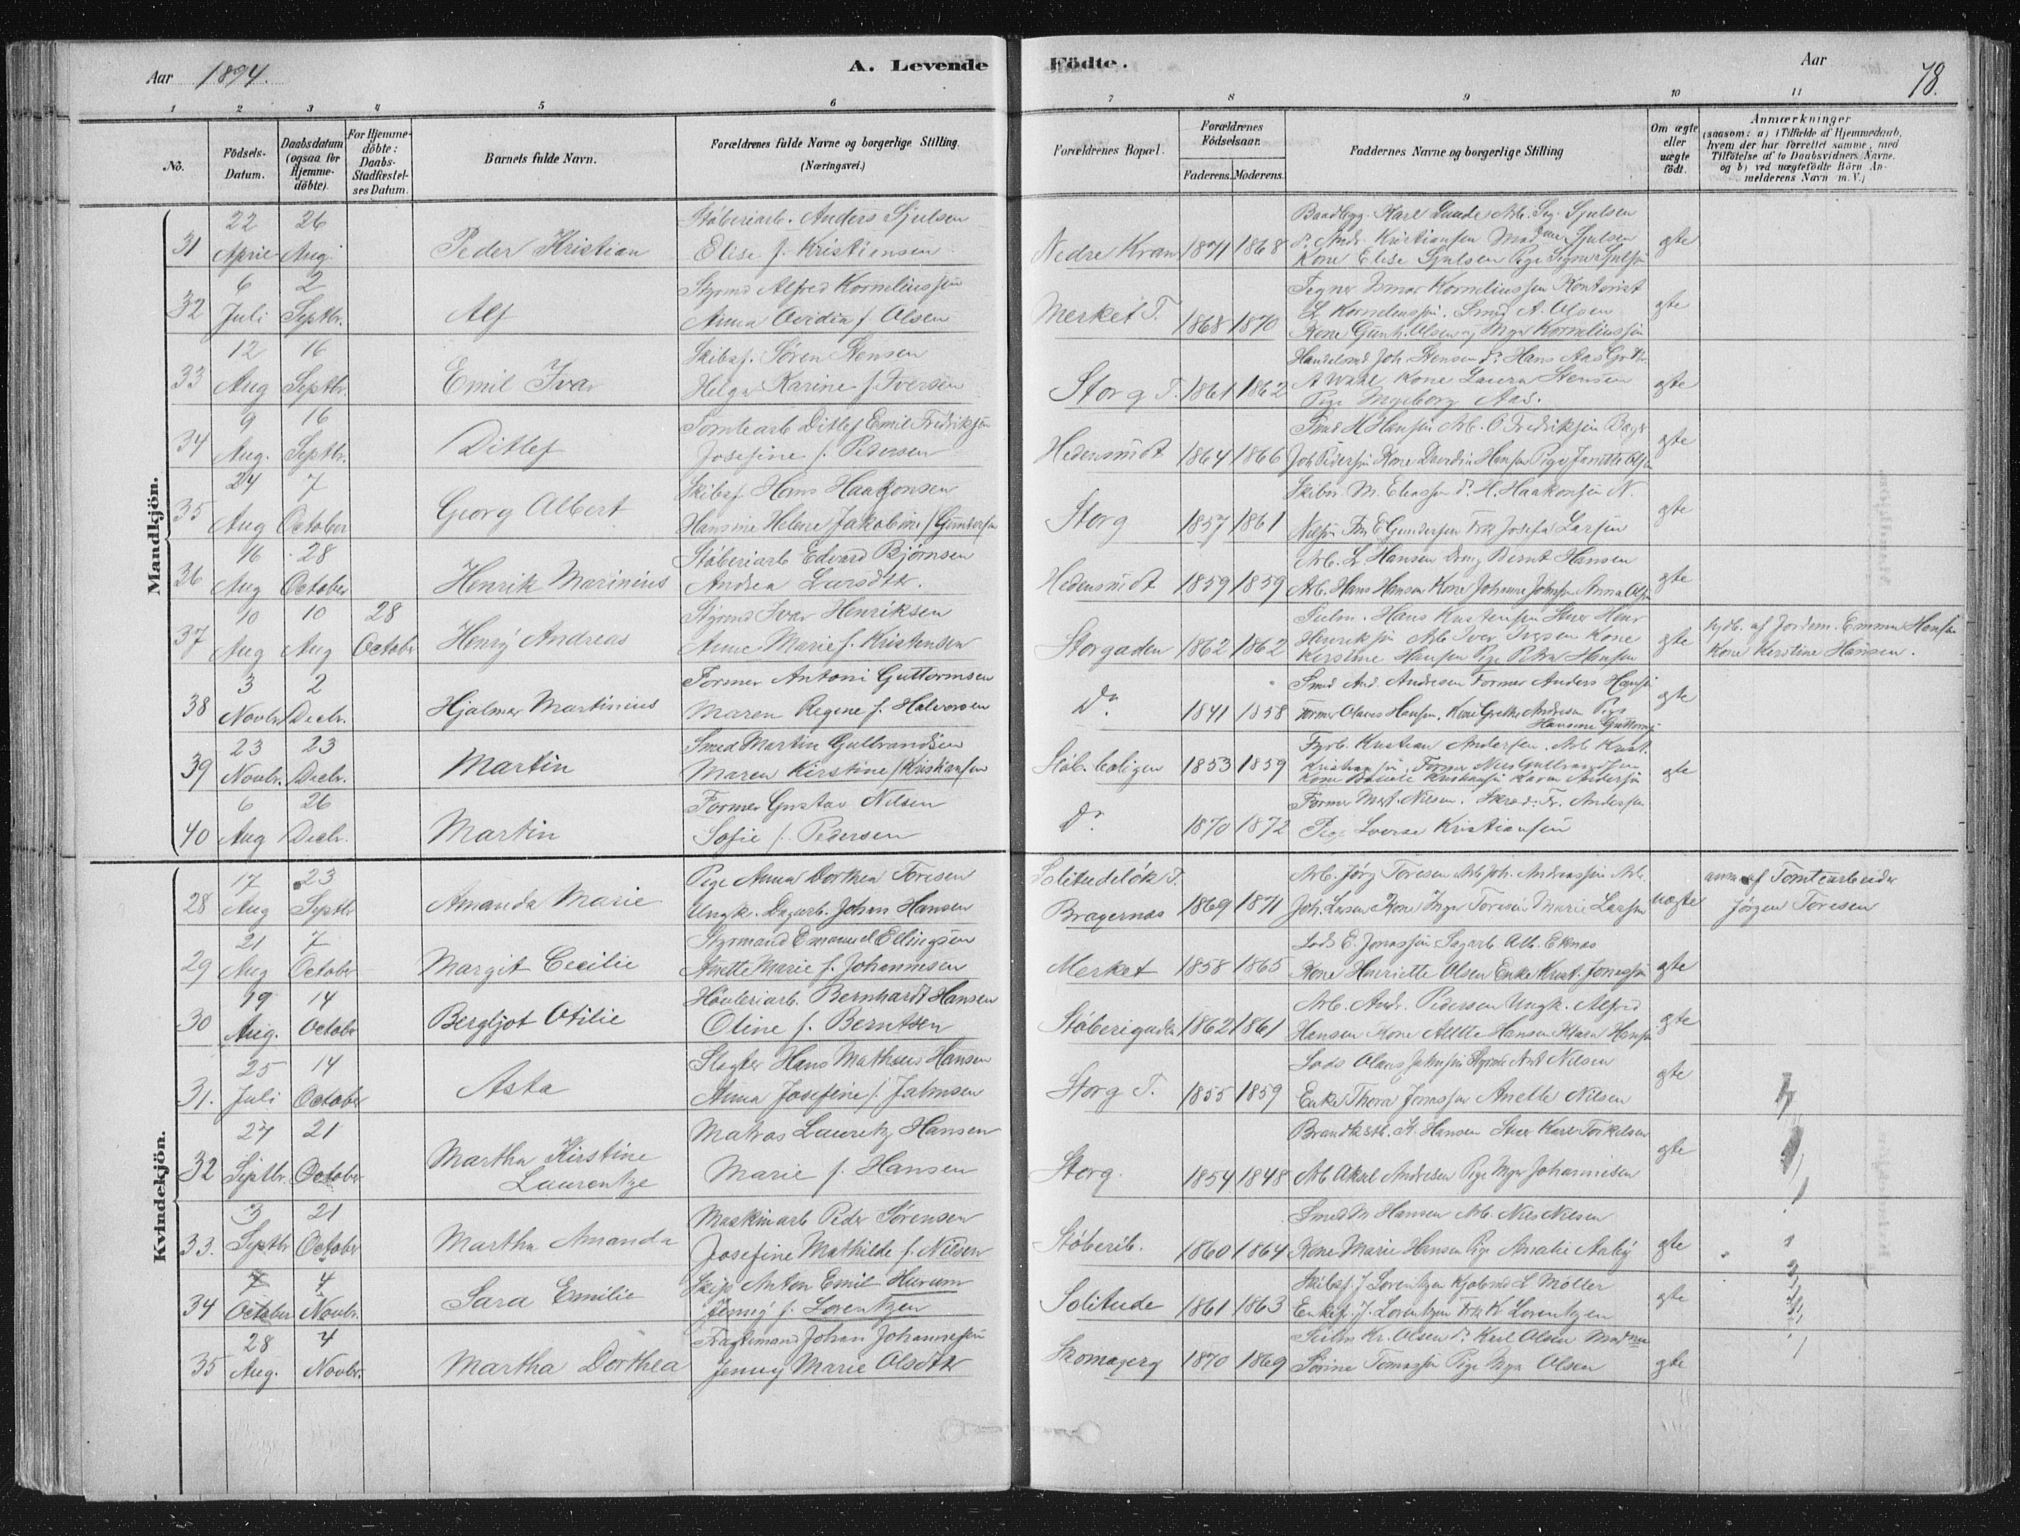 Aar 1894.
A. Levende Födte.
Aar
78.
1 2 3 4 5 6 7 8 9 10 11
No.
Födsels-Datum.
Daabsdatum (ogsaa for Hjemme-döbte).
For Hjemme-döbte: Daabs-Stadfæstel-ses Datum.
Barnets fulde Navn.
Forældrenes fulde Navne og borgerlige Stilling. (Næringsvei.)
Forældrenes Bopæl.
Forældrenes Födselsaar.
Faderens. Moderens.
Faddernes Navne og borgerlige Stilling
Om ægte eller uægte födt.
Anmærkninger
(saasom: a) i Tilfælde af Hjemmedaab, hvem der har forrettet samme, med Tilföielse af to Daabsvidners Navne, og b) ved uægtefödte Börn An-melderens Navn m. V.)
Mandkjön.
31 22 April 26 Aug. Peder Kristian
Støberiarb. Anders Sjulsen
Elise f. Kristiansen
Nedre Kran 1871 1868
Kone Elise Sjulsen Pige
gte
32 6 Juli 2 Septbr. Alf
Styrmd Alfred Korneliussen
Anna Ovidia f. Olsen
Merket T. 1868 1870
Tegner Korneliussen Kontorist
L Korneliussen. Smed A. Olsen
Kone Gunh. Olsen og Inger Korneliussen
gte
33 12 Aug 16 Septbr. Emil Ivar
Skibsf. Søren Stensen
Helga Karine f. Iversen
Storg T. 1861 1862
Handelsmd Joh. Stensen do Hans Aas
A Wahl Kone Laura Stensen
Pige Ingeborg Aas.
gte
34 9 Aug. 16 Septbr. Ditlef
Tomtearb Ditlef Emil Fredriksen
Josefine f. Pedersen
Hedensrudt 1864 1866
Smed H Hansen Arb. O Fredriksen
Joh Pedersen Kone Hansen Pige Olsen
gte
35 24 Aug 7 October Georg Albert
Skibsf. Hans Haakonsen
Hansine Helene Jakobine f. Gundersen
Storg 1857 1861
Skibsr. M. Eliassen do H. Haakonsen N.
Nilsen Gundersen Frk Josefa Larsen
gte
36 16 Aug 28 October Henrik Marinius
Støberiarb Edvard Bjørnsen
Andrea Larsdtr.
Hedensrudt 1859 1859
Arb. L Hansen Dreng Bernt Hansen
Arb. Hans Hansen Kone Johanne Anna Olsen
gte
37 10 Aug 10 Aug 28 October Henry Andreas
Styrmd Ivar Henriksen
Anne Marie f. Kristensen
Storgaden 1862 1862
Hans
Henriksen Arb Iver Kone
Kirstine Hansen Pige Petra Hansen
gte
hjdb. af Jordem. Emma Hansen
Kone Kirstine Hansen.
38 3 Novbr. 2 Decbr. Hjalmar Martinius
Former Antoni Guttormsen
Maren Regine f. Halvorsen
Do 1841 1858
Smed And. Andresen Former Anders Hansen
Former Olaves Hansen. Kone Grethe Andresen Pige
Hansine Guttormsen
gte
39 23 Novbr. 23 Decbr. Martin
Smed Martin Gulbrandsen
Maren Kirstine f. Kristiansen
Støb. boligen 1853 1859
Fyrb. Kristian Andersen. Arb Krist.
Kristiansen. Former Nils Gulbrandsen
Kone Kristiansen Karen Andersen
gte
40 6 Aug 26 Decbr. Martin
Former Gustav Nilsen
Sofie f. Pedersen
Do 1870 1872
Former Mart. Nilsen. Skræd. Fr. Andersen
Pige Lovise Kristiansen
Kvindekjön.
28 17 Aug 23 Septbr Amanda Marie
Pige Anna Dorthea Toresen
Ungk. Dagarb. Johan Hansen
Solitudeløk T.
Bragernæs 1869 1871
Arb. Jørg Toresen Arb Joh. Andreassen Arb.
Joh. Larsen Kone Inger Toresen Marie Larsen
uægte
anm. af Tomtearbeider
Jørgen Toresen
29 21 Aug 7 October Margit Cecilie
Styrmand Emanuel Ellingsen
Anette Marie f. Johannesen
Merket 1858 1865
Lods E. Jonassen Sagarb Alb. Eknæs
Kone Henriette Olsen Enke Krist. Jonassen
gte
30 19 Aug. 14 October Bergljot Otilie
Høvleriarb. Bernhardt Hansen
Oline f. Berntsen
Støberigaden 1862 1861
Arb. Andr. Pedersen Ungk. Alfred
Hansen Kone Hansen Klara Hansen
gte
31. 25 Juli 14 October Asta
Slagter Hans Mathæus Hansen
Anna Josefine f. Jahnsen
Storg T. 1855 1859
Lods Olaus Styrmd Ant Nilsen
Enke Thora Jonassen Anette Nilsen
gte
32 27 Septbr. 21 October Martha Kirstine
Laurentze
Matros Lauretz Hansen
Marie f. Hansen
Storg. 1854 1848
Hansen Karl Torkelsen
Arb Aksel Andresen Pige Inger Johannesen
gte
33. 3 Septbr 21 October Martha Amanda
Maskinarb Peder Sørensen
Josefine Mathilde f. Nilsen
Støberib. 1860 1864
Smed M Hansen Arb. Nils Nilsen
Kone Marie Hansen Pige Amalie Aaby
gte
34 7 October 4 Novbr. Sara Emilie
Skip. Anton Emil Hurum
Jenny f. Lorentzen
Solitude 1861 1863
Skibsf. J. Lorentzen Kjøbmd L. Møller
Enkef. J. Lorentzen Frk K Lorentzen
gte
35 28 Aug. 4 Novbr. Martha Dorthea
Fragtemand Johan Johannesen
Jenny Marie Olsdtr
Skomagerg 1870 1869
Kr. Olsen do Karl Olsen
Sørine Tomassen Pige Inga Olsen
gte